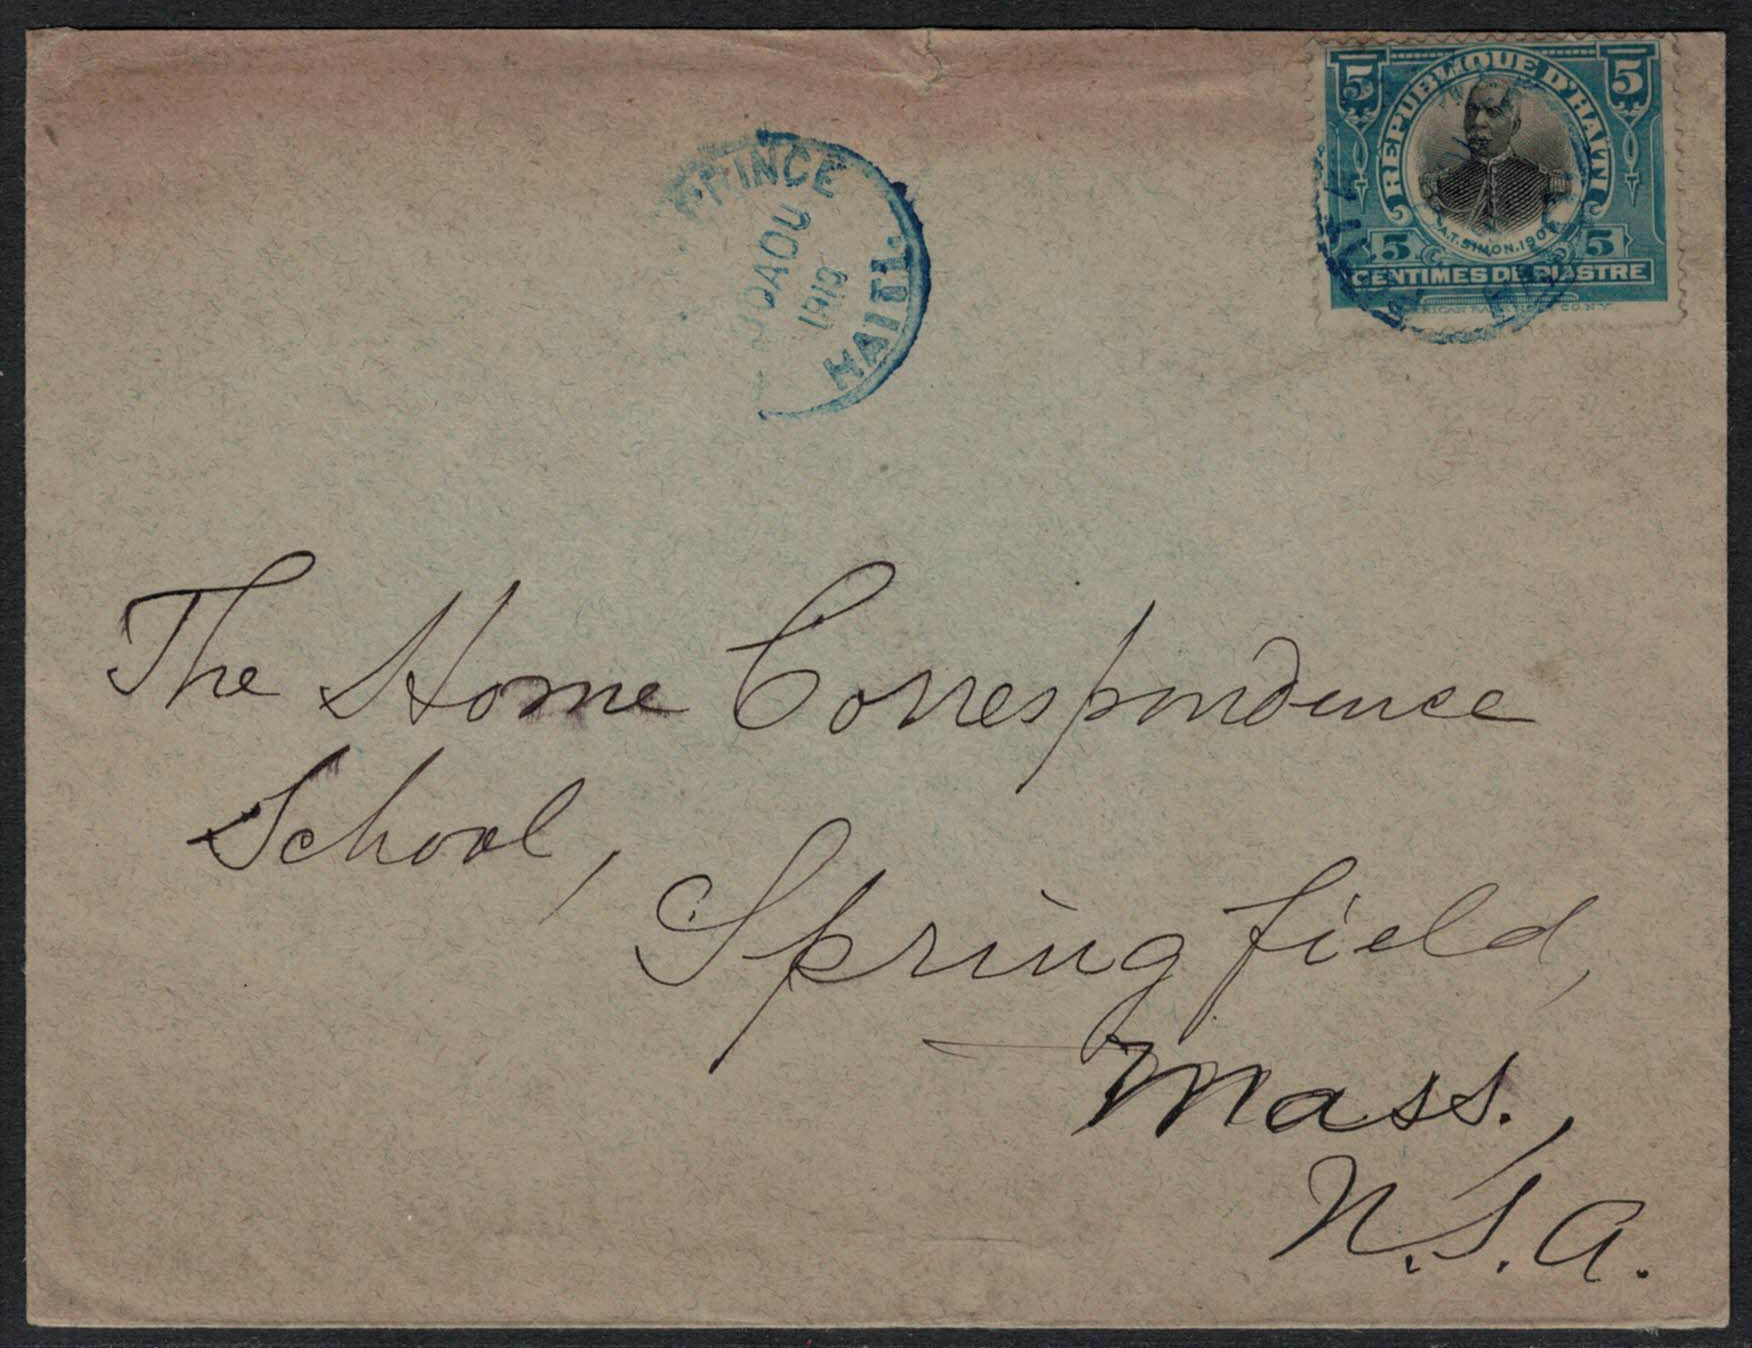 PRINCE
AOU
HAITI.
5 5
REPUBLIQUE D'HAITI
A.T. SIMON.
5 5
CENTIMES DE PIASTRE
The Home Correspondence
School,
Springfield,
Mass.,
U.S.A.